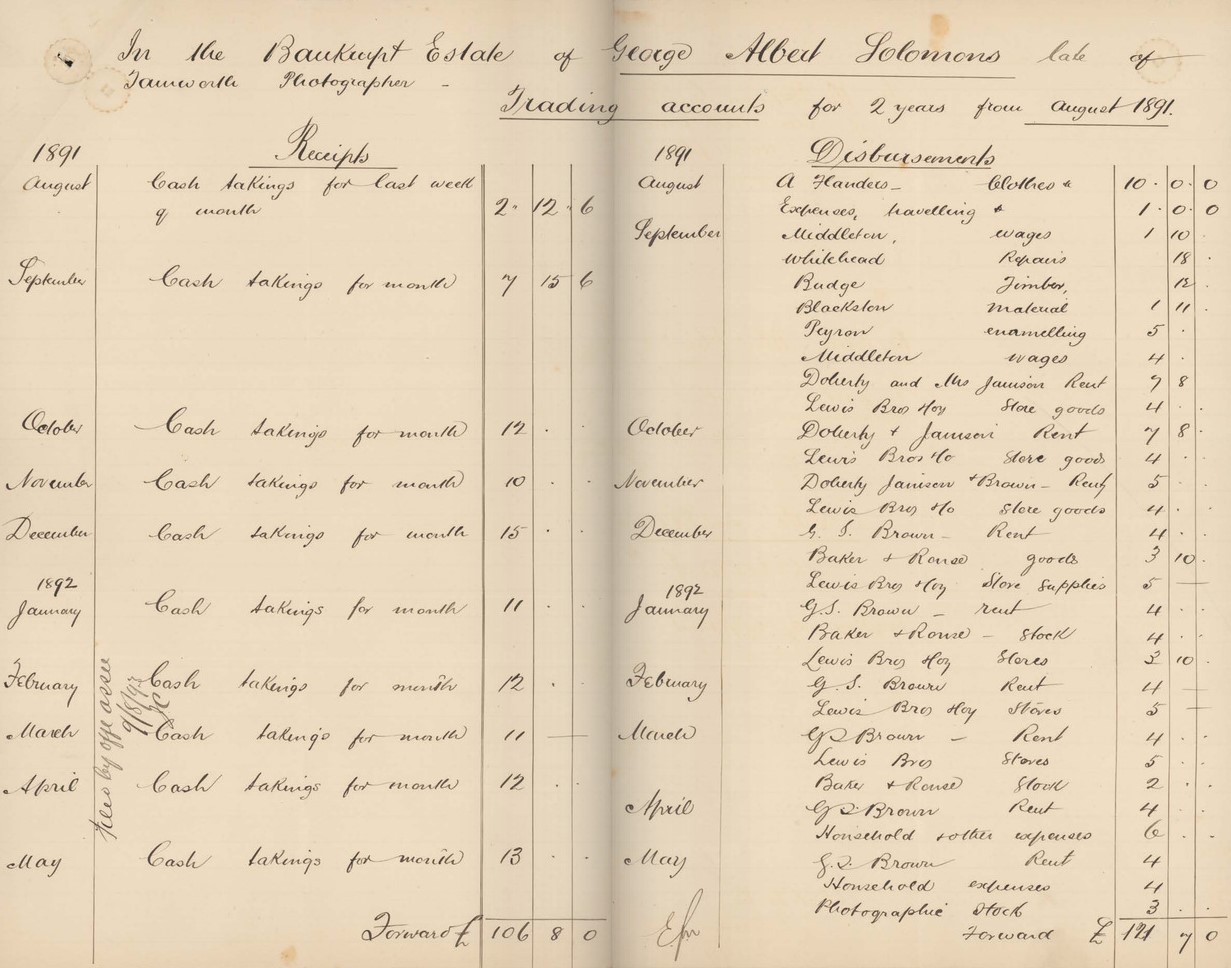 In the Bankrupt Estate of George Albert Solomons late of
Tamworth Photographer -
Trading accounts for 2 years from August 1891.
1891 Receipts
August Cash takings for last week
of month 2 " 12 " 6
September Cash takings for month 7 15 6
October Cash takings for month 12 . .
November Cash takings for month 10 . .
December Cash takings for month 15 . .
1892
January Cash takings for month 11 . .
February Cash takings for month 12 . .
March Cash takings for month 11 —
April Cash takings for month 12 . .
May Cash takings for month 13 . .
Forward £ 106 8 0
Filed by offl assee
9/8/93
1891 Disbursements
August A Flanders - Clothes &
10 . 0 . 0
Expenses, travelling & 1 . 0 . 0
September Middleton, wages 1 10 .
Whitehead Repairs 18 .
Budge Timber, 12 .
Blackston Material 1 11 .
Peyron enamelling 5 .
Middleton wages 4 .
Doherty and Mrs Jamison Rent 7 8
Lewis Bros Hoy Store goods 4 . .
October Doherty & Jamison Rent 7 8 .
Lewis Bros &Co Store goods 4 . .
November Doherty Jamison & Brown - Rent 5 . .
Lewis Bros &Co Store goods 4 . .
December G. S. Brown - Rent 4 . .
Baker & Rouse goods 3 10 .
Lewis Bros Hoy Store Supplies 5 —
1892
January G.S. Brown - rent 4 . .
Baker & Rouse - Stock 4 . .
Lewis Bros Hoy Stores 3 10 .
February G. S. Brown Rent 4 —
Lewis Bros Hoy Stores 5 —
March GS Brown - Rent 4 . .
Lewis Bros Stores 5 . .
Baker & Rouse Stock 2 . .
April GS Brown Rent 4 . .
Household & other expenses 6 . .
May G.S. Brown Rent 4
Household expenses 4
Photographic Stock 3 . .
Forward £ 121 7 0